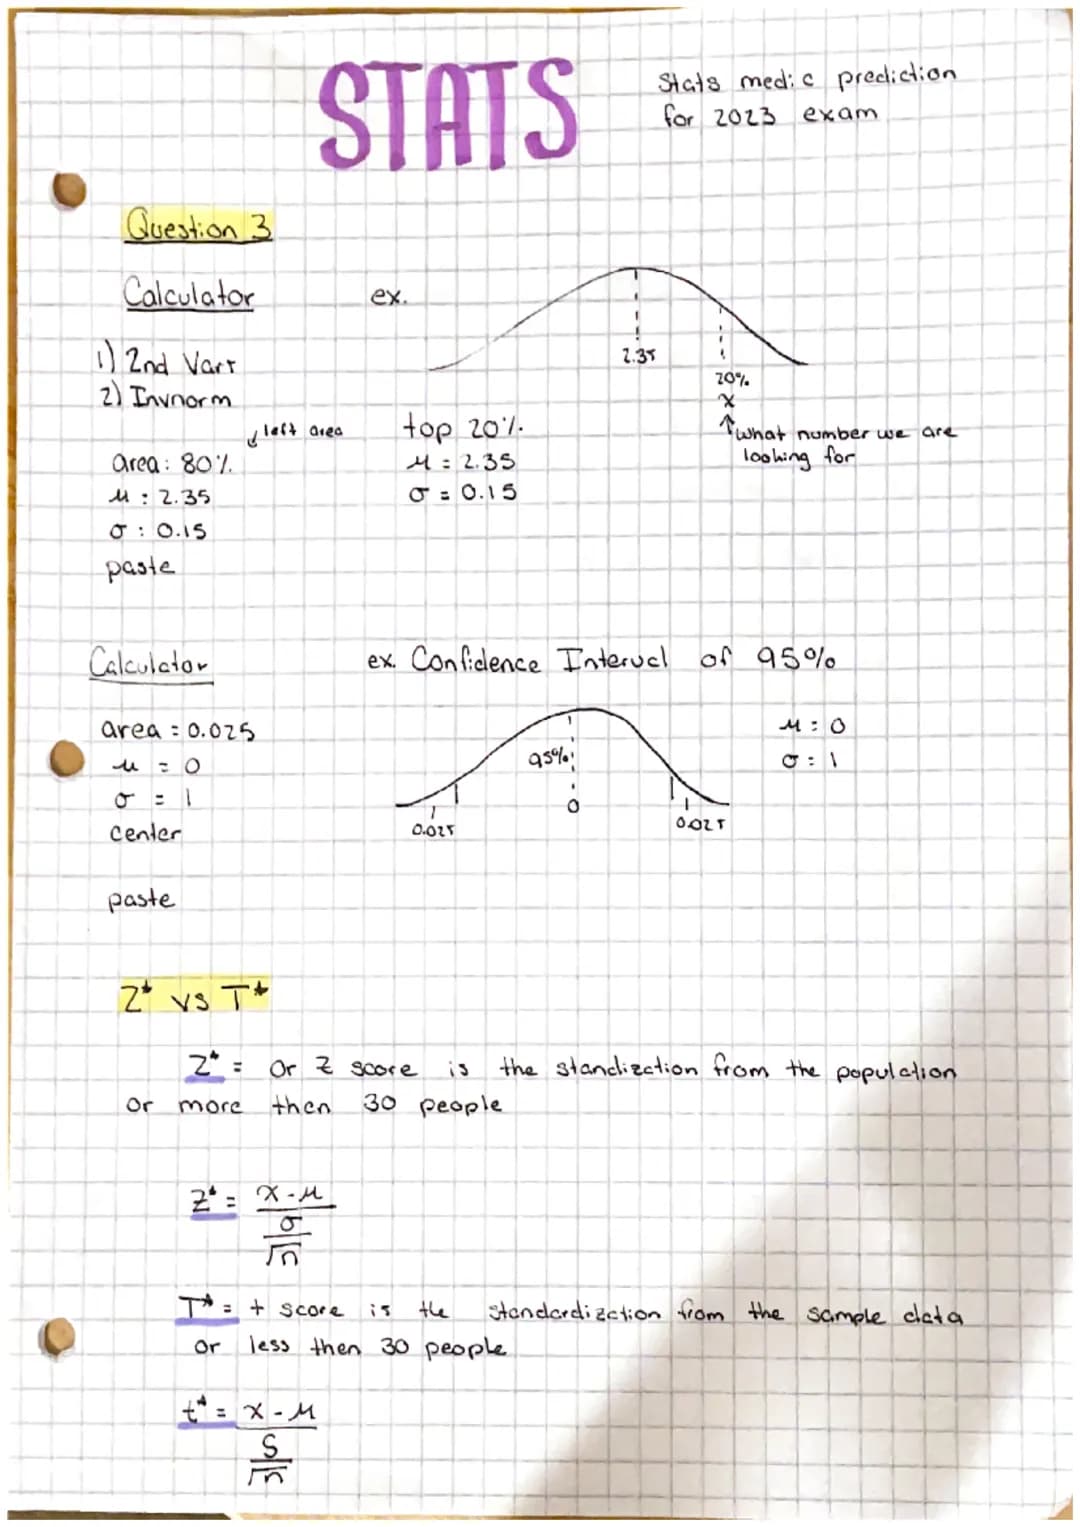 STATS
Stats medic prediction
for 2023 exam
Question 3
Calculator
ex.
1) 2nd Vars
2) Invnorm
↓ left area
area: 80%
μ : 2.35
σ : 0.15
paste
top 20%
μ = 2.35
σ = 0.15
2.35
20%
x
↑ what number we are
looking for
Calculator
ex. Confidence Interval of 95%
area = 0.025
μ = 0
σ = 1
center
paste
95%
0
0.025
0.025
μ : 0
σ : 1
Z* vs T*
Z* = Or Z score is the standization from the population
or more then 30 people
Z* = x - μ
σ
√n
T* = t score is the standardization from the sample data
or less then 30 people
t* = x - μ
S
√n